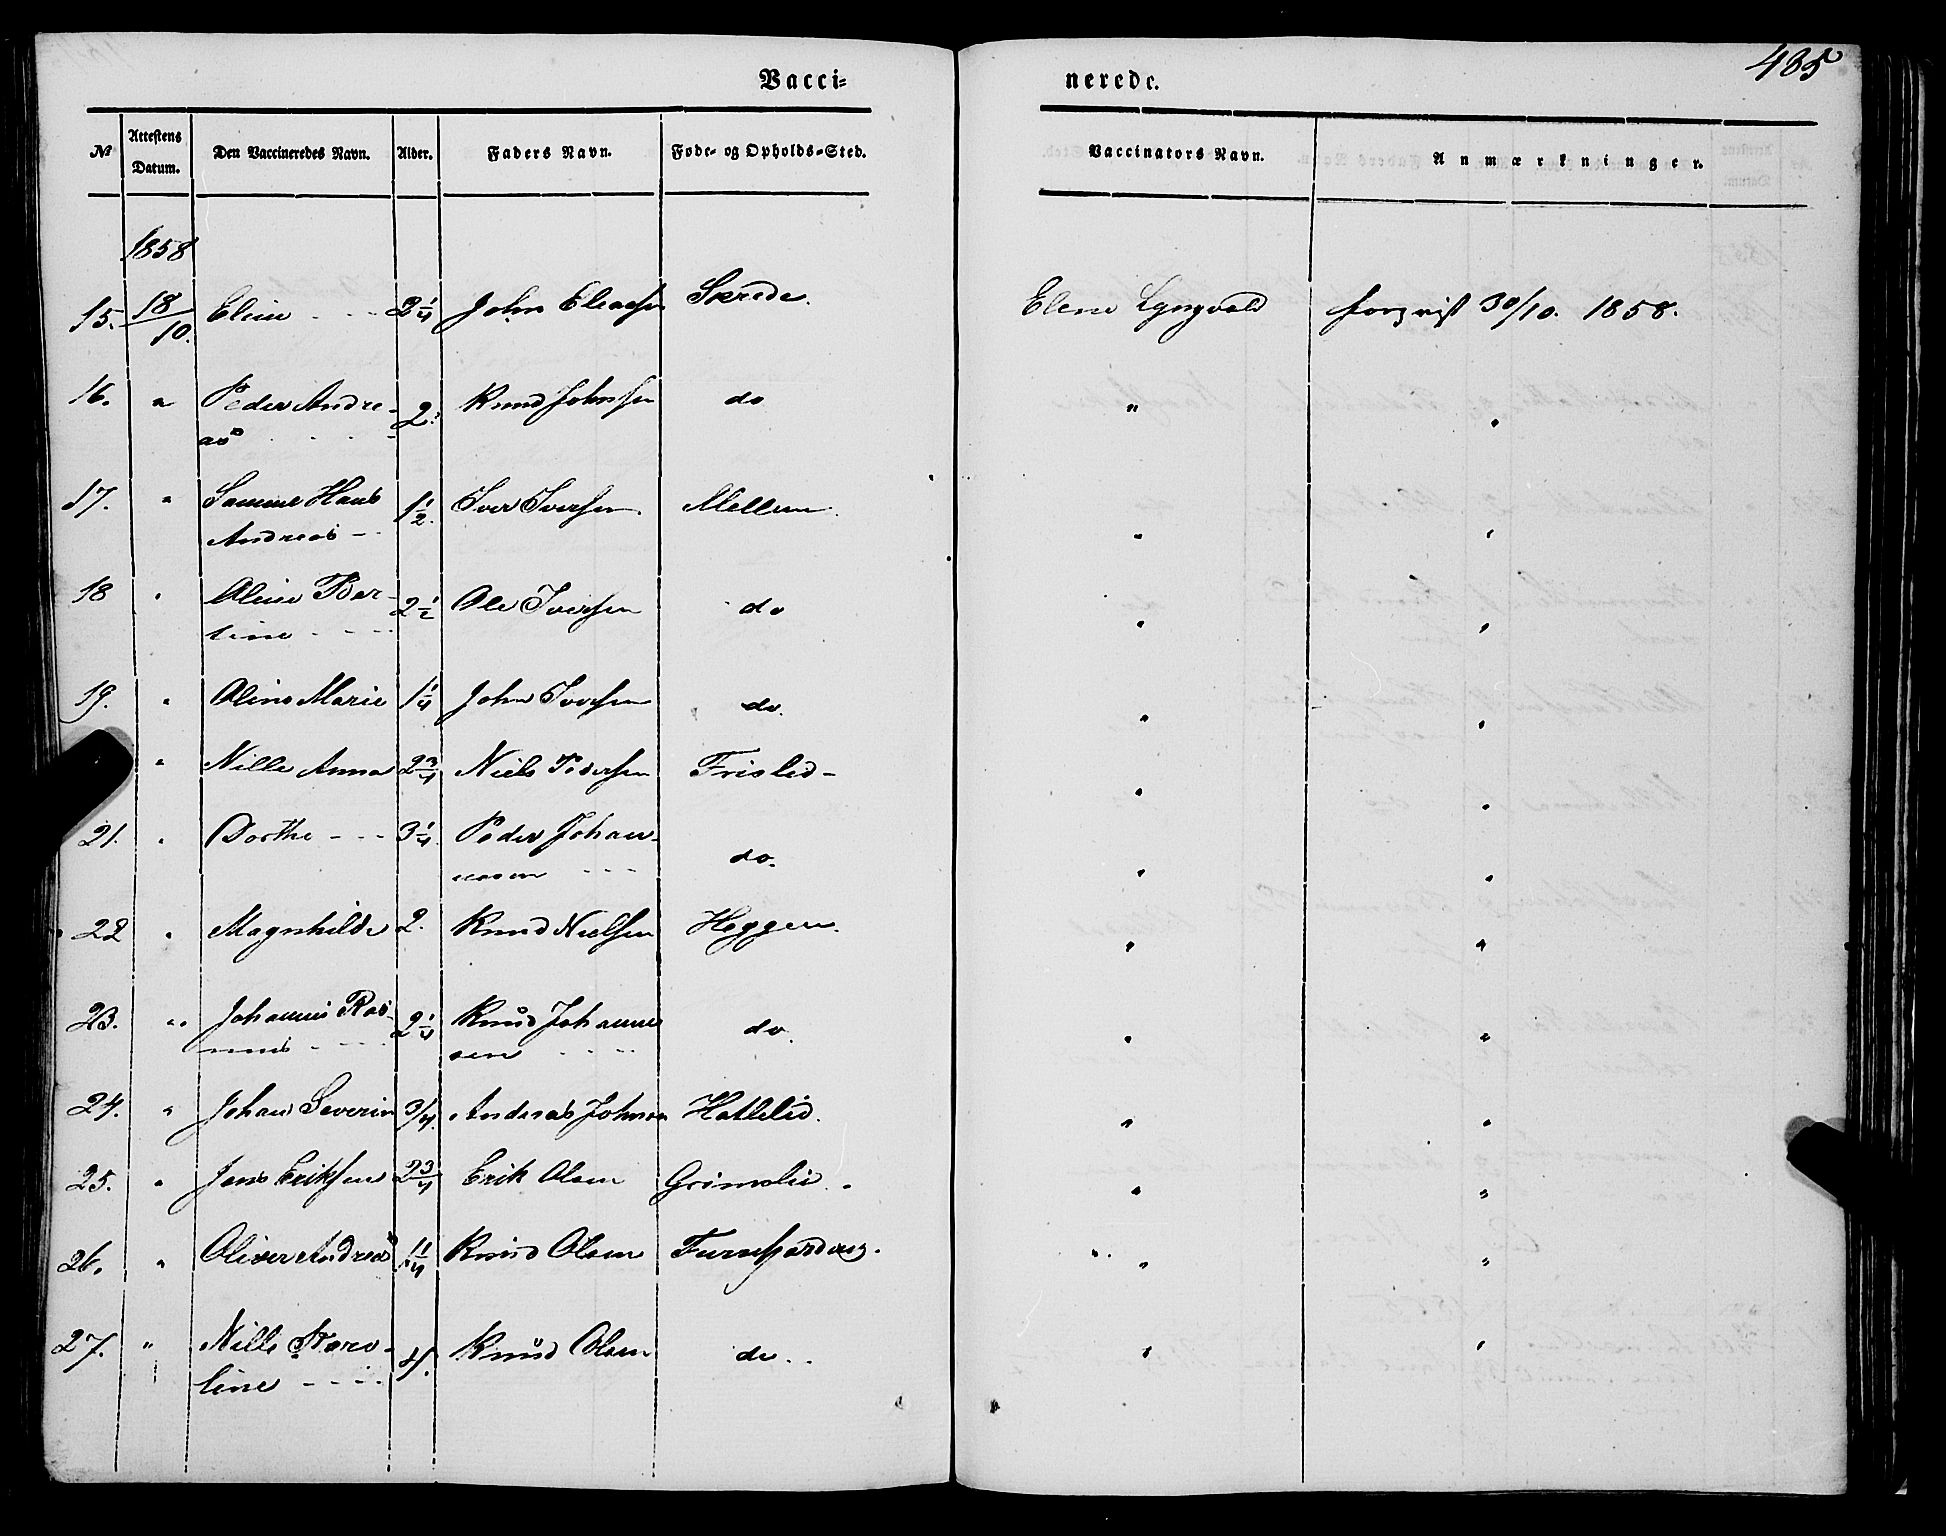 485
Vacci-
nerede.
No Attestens Datum. Den Vaccineredes Navn. Alder. Faders Navn. Føde- og Opholds-Sted. Vaccinators Navn. Anmærkninger.
1858
15. 18/10. Eline - - - 2 1/4 John Eliassen Skrede. Elene Lyngvold 30/10. 1858.
16. " Peder Andre- 2. Knud Johnsen do " "
as
17. " Hans 1 1/2. Iver Iversen. Mellem. " "
Andreas -
18 " Oline Ber- 2 1/2 Ole Iversen do " "
tine - - -
19. " Oline Marie 1 1/4 John Iversen do. " "
" Nille Anna 2 3/4 Niels Pedersen Frislid- " "
21. " Dorthe - - - 3 1/4. Peder Johan- do. " "
nessen - - -
22 " Magnhilde 2. Knud Nielsen Heggem. " "
23. " Johannes Ras- 2 1/4 Knud Johannes do. " "
mus - - - sen - - -
24. " Johan Severin 3/4. Andreas Johnsen Hatlelid. " "
25. " Jens Eriksen 2 3/4 Erik Olsen Grimslid. " "
26. " Oliver Andreas 1 1/4 Knud Olsen " "
27. " Nille Karo- 4. Knud Olsen do. " "
line - - - -